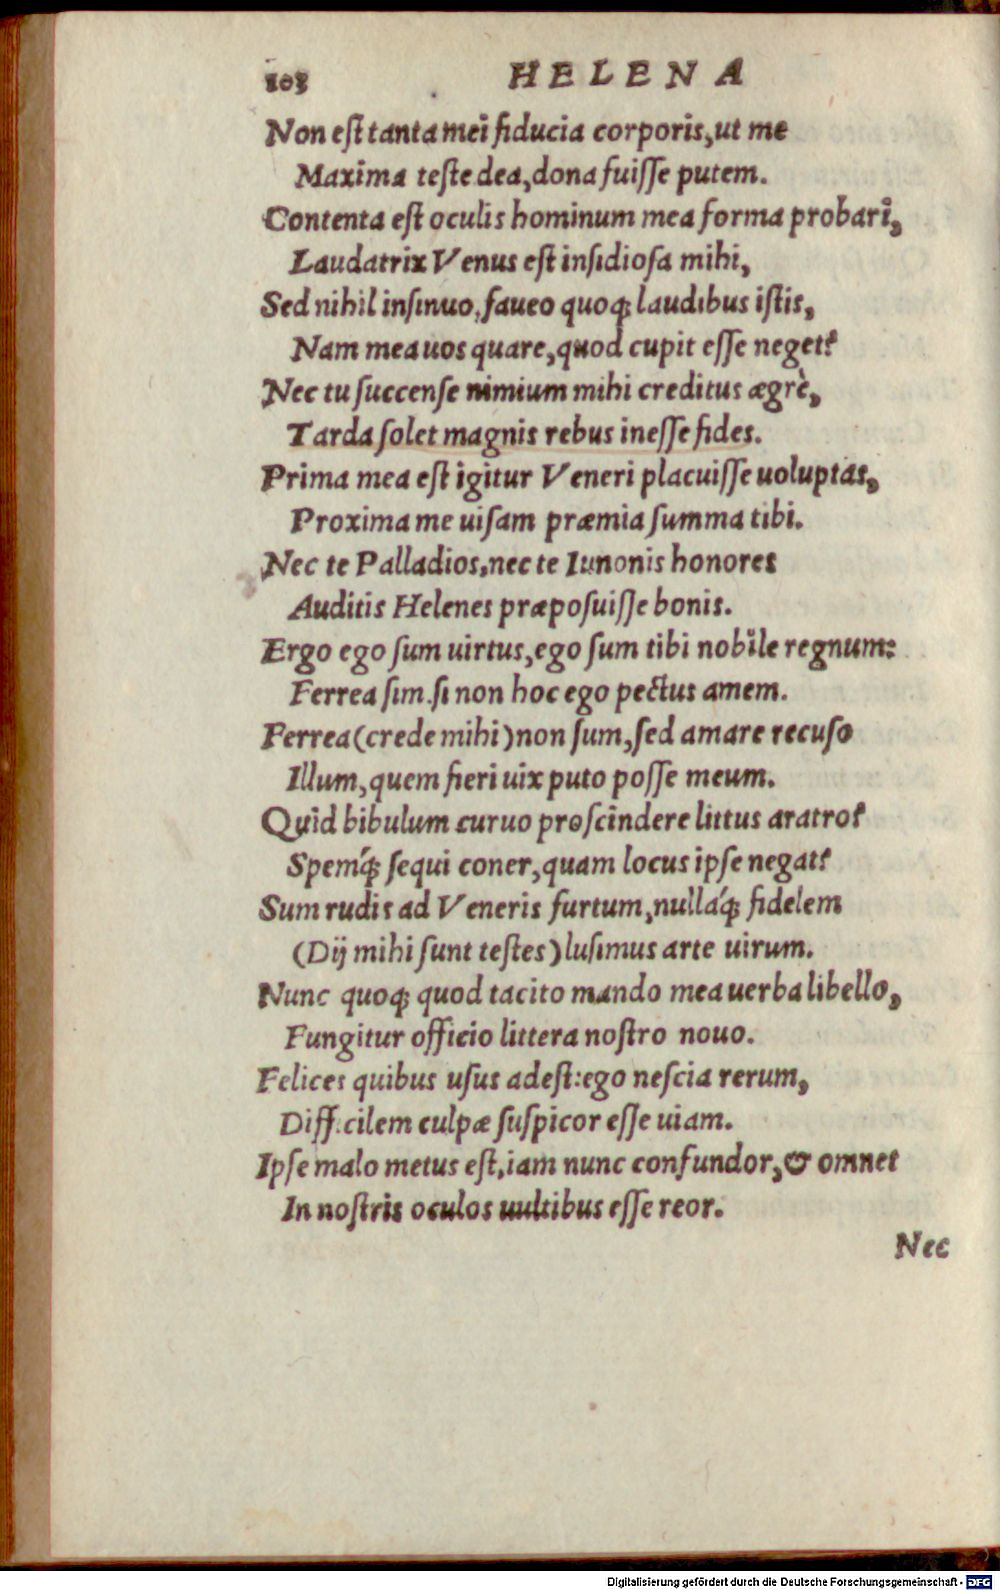 103 HELENA
Non est tanta mei fiducia corporis, ut me
Maxima teste dea, dona fuisse putem.
Contenta est oculis hominum mea forma probari,
Laudatrix Venus est insidiosa mihi,
Sed nihil insinuo, faueo quoq; laudibus istis,
Nam mea uos quare, quod cupit esse neget?
Nec tu succense nimium mihi creditus ægrè,
Tarda solet magnis rebus inesse fides.
Prima mea est igitur Veneri placuisse uoluptas,
Proxima me uisam præmia summa tibi.
Nec te Palladios, nec te Iunonis honores
Auditis Helenes præposuisse bonis.
Ergo ego sum uirtus, ego sum tibi nobile regnum:
Ferrea sim. si non hoc ego pectus amem.
Ferrea (crede mihi) non sum, sed amare recuso
Illum, quem fieri uix puto posse meum.
Quid bibulum curuo proscindere littus aratro?
Spemq́; sequi coner, quam locus ipse negat?
Sum rudis ad Veneris furtum, nullaq́; fidelem
(Dij mihi sunt testes) lusimus arte uirum.
Nunc quoq; quod tacito mando mea uerba libello,
Fungitur officio littera nostro nouo.
Felices quibus usus adest: ego nescia rerum,
Difficilem culpæ suspicor esse uiam.
Ipse malo metus est, iam nunc confundor, & omnet
In nostris oculos uultibus esse reor.
Nec
Digitalisierung gefördert durch die Deutsche Forschungsgemeinschaft - DFG